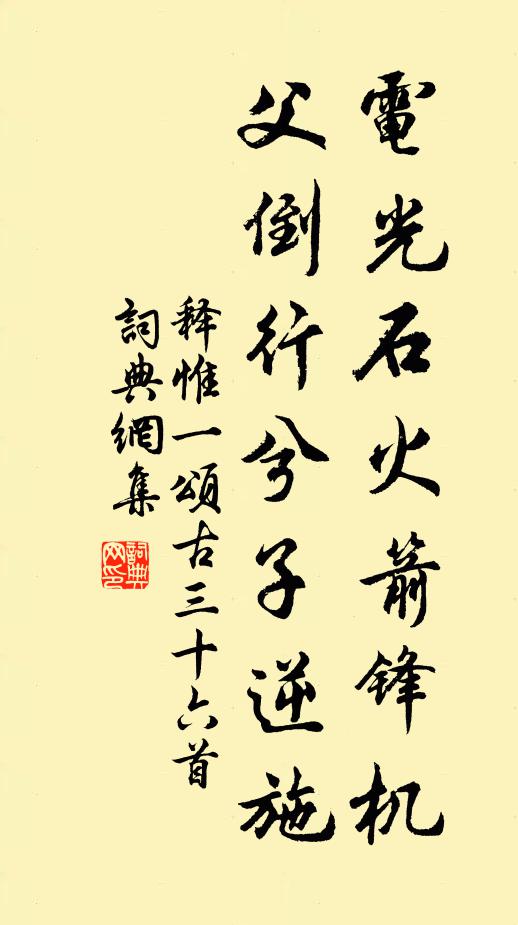 電光石火箭锋机
父倒行兮子逆施
释惟一頌古三十六首
詞典網集
詞典网印